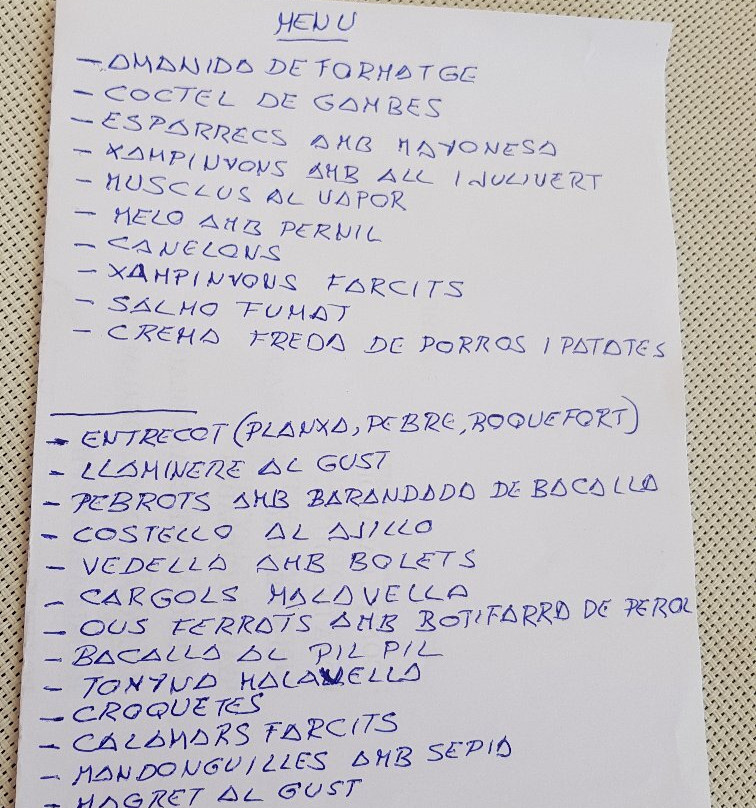 MENU
- AMANIDA DE FORMATGE
- COCTEL DE GAMBES
- ESPARRECS AMB MAYONESA
- XAMPINYONS AMB ALL I JULIVERT
- MUSCLUS AL VAPOR
- MELO AMB PERNIL
- CANELONS
- XAMPINYONS FARCITS
- SALMO FUMAT
- CREMA FREDA DE PORROS I PATATES
- ENTRECOT (PLANXA, PEBRE, ROQUEFORT)
- LLAMINERE AL GUST
- PEBROTS AMB BARANDADA DE BACALLA
- COSTELLO AL AJILLO
- VEDELLA AMB BOLETS
- CARGOLS MALAVELLA
- OUS FERRATS AMB BOTIFARRA DE PEROL
- BACALLA AL PIL PIL
- TONYNA MALAVELLA
- CROQUETES
- CALAMARS FARCITS
- MANDONGUILLES AMB SEPIA
- MAGRET AL GUST